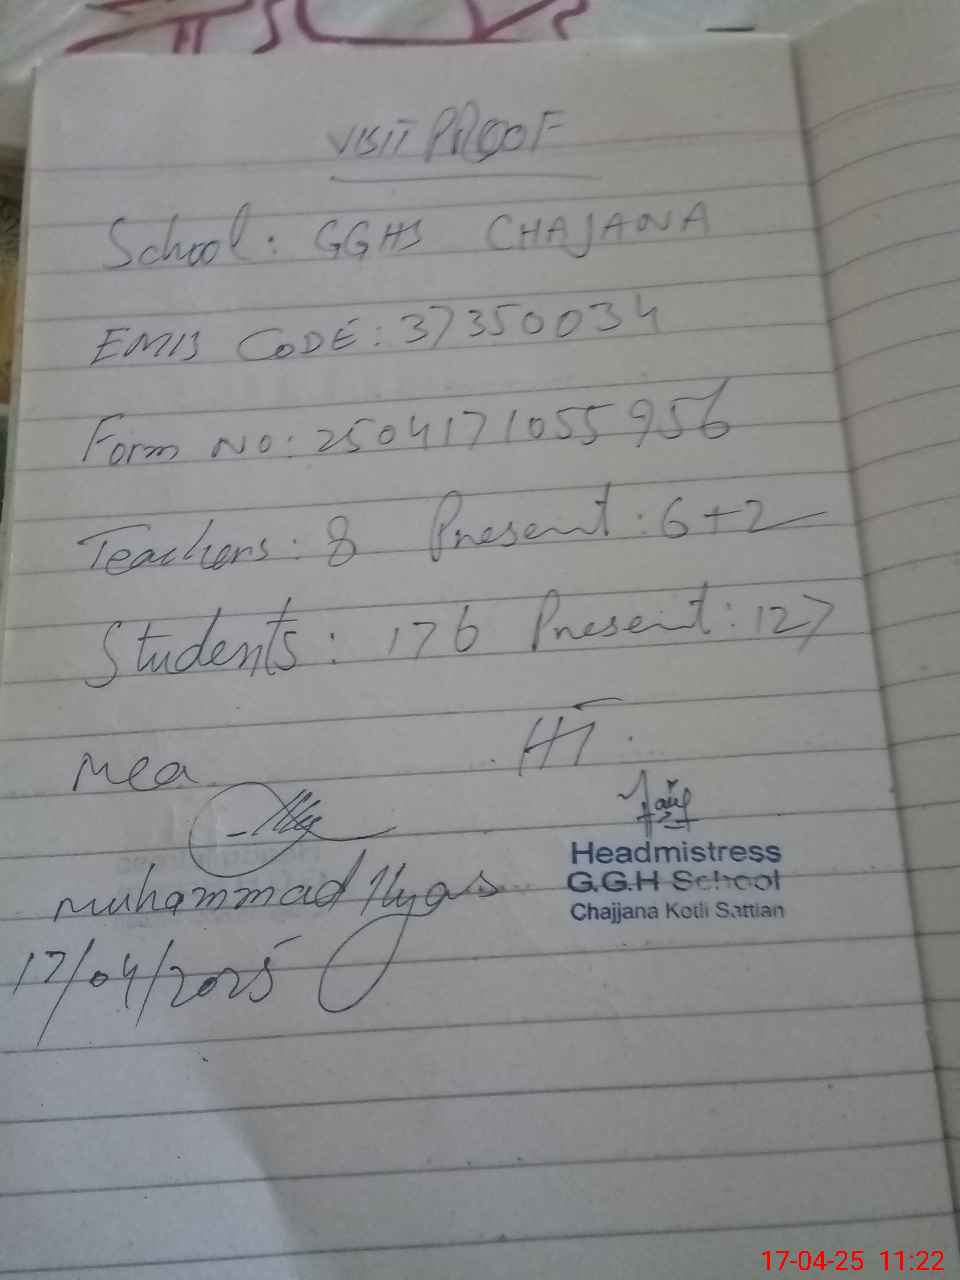 VISIT PROOF
School: GGHS CHAJANA
EMIS CODE: 37350034
Form NO: 2504171055956
Teachers: 8 Present: 6+2
Students: 176 Present: 127
Mea HT.
Headmistress
G.G.H School
Chajjana Kotli Sattian
Muhammad Ilyas
17/04/2025
17-04-25 11:22